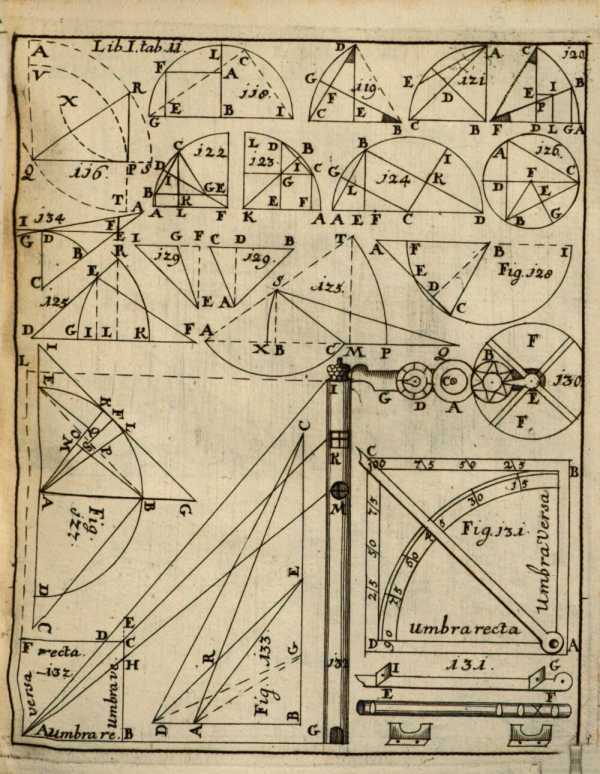 Lib. I. tab. 11.
A
V
X
R
Q
P
S
T
116
L
C
F
A
G
E
B
I
118
D
G
F
C
E
B
119
A
E
F
D
C
B
121
C
E
I
B
P
F
D
L
G
A
120
C
D
I
B
G
E
A
L
R
F
122
L
D
B
I
C
G
K
E
F
A
123
B
I
G
L
R
A
E
F
C
D
124
A
C
D
F
B
E
G
126
I
134
A
G
D
F
E
C
B
R
E
125
D
G
I
L
R
F
I
G
F
129
E
C
D
B
129
A
T
S
125
A
X
B
C
M
P
Q
A
F
B
I
E
D
C
Fig. 128
I
L
E
R
F
L
Q
P
M
A
B
G
Fig. 127
D
C
I
K
M
G
D
A
B
E
F
F
C
130
C
E
R
G
D
A
B
G
Fig 133
132
C
100
75
50
25
B
75
50
25
15
30
45
60
75
90
Fig. 131.
Umbra Versa
Umbra recta
D
A
131.
I
G
E
F
E
D
C
F
recta
H
132
versa
umbra va
A
umbra re.
B